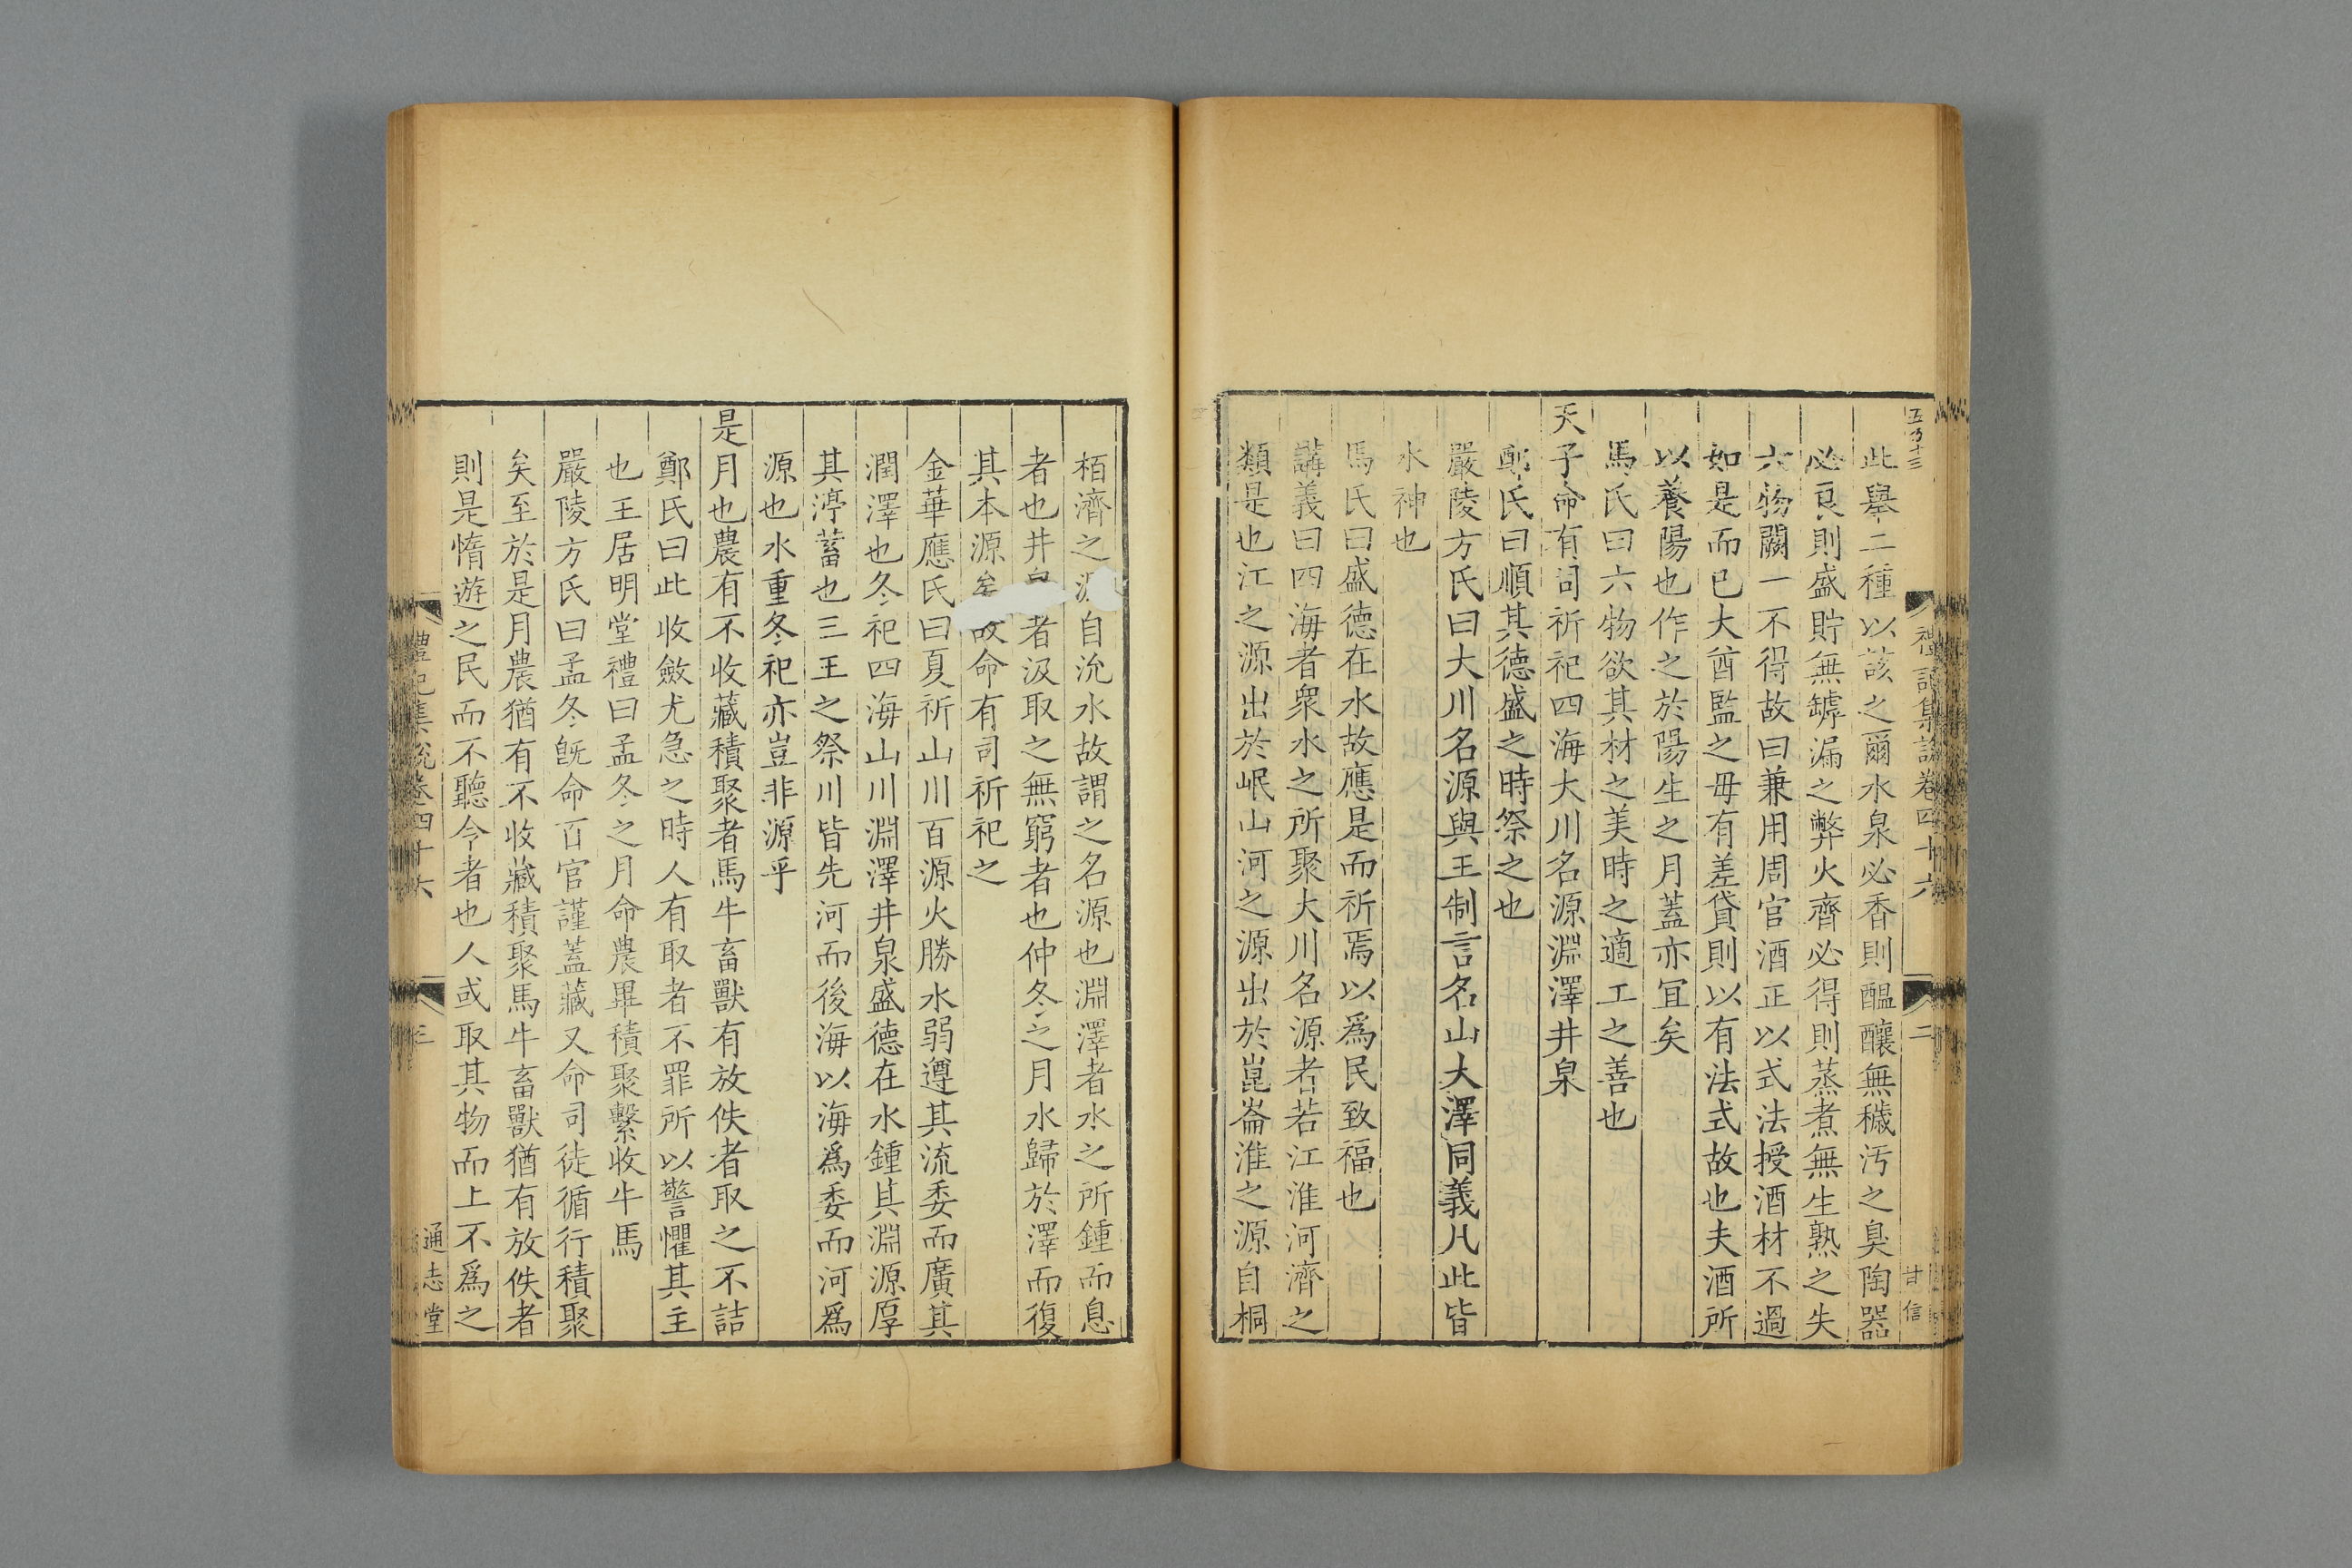 禮記集說卷四十六 二 甘信
此舉二種以該之爾水泉必香則醖釀無穢汚之臭陶器
必良則盛貯無罅漏之弊火齊必得則蒸煮無生熟之失
六物闕一不得故曰兼用周官酒正以式法授酒材不過
如是而已大酋監之毋有差貸則以有法式故也夫酒所
以養陽也作之於陽生之月蓋亦宜矣
馬氏曰六物欲其材之美時之適工之善也
天子命有司祈祀四海大川名源淵澤井泉
鄭氏曰順其德盛之時祭之也
嚴陵方氏曰大川名源與王制言名山大澤同義凡此皆
水神也
馬氏曰盛德在水故應是而祈焉以爲民致福也
講義曰四海者衆水之所聚大川名源者若江淮河濟之
類是也江之源出於岷山河之源出於崑崙淮之源自桐
栢濟之源自沇水故謂之名源也淵澤者水之所鍾而息
者也井泉者汲取之無窮者也仲冬之月水歸於澤而復
其本源矣故命有司祈祀之
金華應氏曰夏祈山川百源火勝水弱遵其流委而廣其
潤澤也冬祀四海山川淵澤井泉盛德在水鍾其淵源厚
其渟蓄也三王之祭川皆先河而後海以海爲委而河爲
源也水重冬祀亦豈非源乎
是月也農有不收藏積聚者馬牛畜獸有放佚者取之不詰
鄭氏曰此收斂尤急之時人有取者不罪所以警懼其主
也王居明堂禮曰孟冬之月命農畢積聚繫收牛馬
嚴陵方氏曰孟冬旣命百官謹蓋藏又命司徒循行積聚
矣至於是月農猶有不收藏積聚馬牛畜獸猶有放佚者
則是惰遊之民而不聽令者也人或取其物而上不爲之
禮記集說卷四十六 三 通志堂